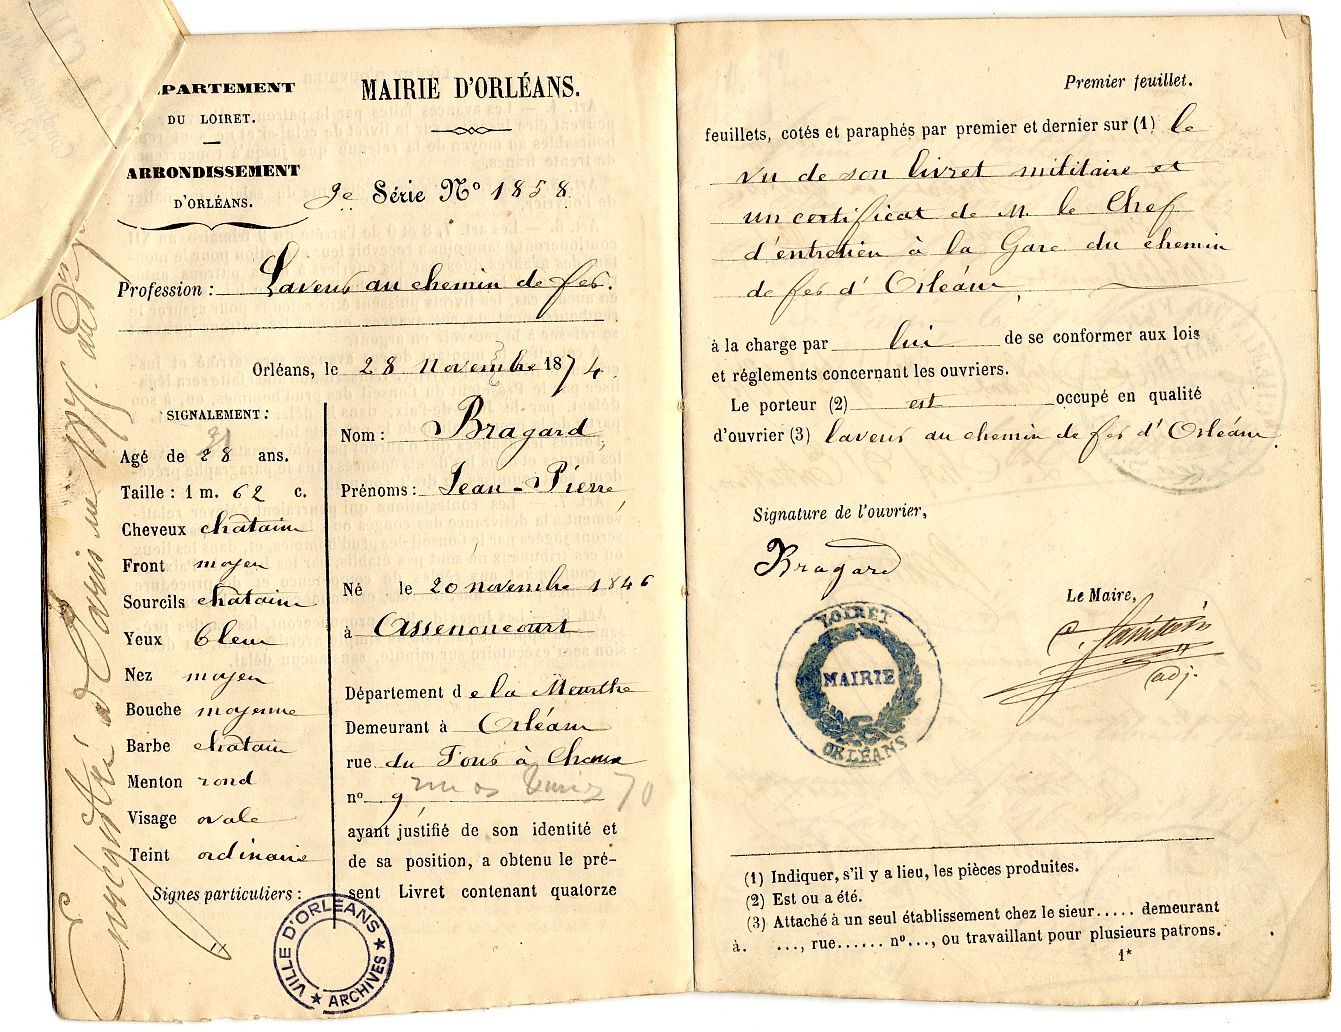 DÉPARTEMENT
DU LOIRET.
ARRONDISSEMENT
D'ORLÉANS.
MAIRIE D'ORLÉANS.
9e Série No 1858
Profession : Laveur au chemin de fer.
Orléans, le 28 novembre 1874
SIGNALEMENT :
Agé de 28 ans.
Taille : 1 m. 62 c.
Cheveux chatains
Front moyen
Sourcils chatains
Yeux bleus
Nez moyen
Bouche moyenne
Barbe chatain
Menton rond
Visage ovale
Teint ordinaire
Signes particuliers :
Nom : Bragard
Prénoms : Jean-Pierre
Né le 20 novembre 1846
à Assenoncourt
Département de la Meurthe
Demeurant à Orléans
rue du Four à Chaux
no 9
70
ayant justifié de son identité et
de sa position, a obtenu le pré-
sent Livret contenant quatorze
VILLE D'ORLÉANS ★ ARCHIVES ★
Enregistré à Paris
Premier feuillet.
feuillets, cotés et paraphés par premier et dernier sur (1) le
vu de son livret militaire et
un certificat de M. le Chef
d'entretien à la Gare du chemin
de fer d'Orléans
à la charge par lui de se conformer aux lois
et réglements concernant les ouvriers.
Le porteur (2) est occupé en qualité
d'ouvrier (3) laveur au chemin de fer d'Orléans.
Signature de l'ouvrier,
Bragard
Le Maire,
adj.
LOIRET
MAIRIE
ORLÉANS
(1) Indiquer, s'il y a lieu, les pièces produites.
(2) Est ou a été.
(3) Attaché à un seul établissement chez le sieur..... demeurant
à. ..., rue...... no..., ou travaillant pour plusieurs patrons.
1*